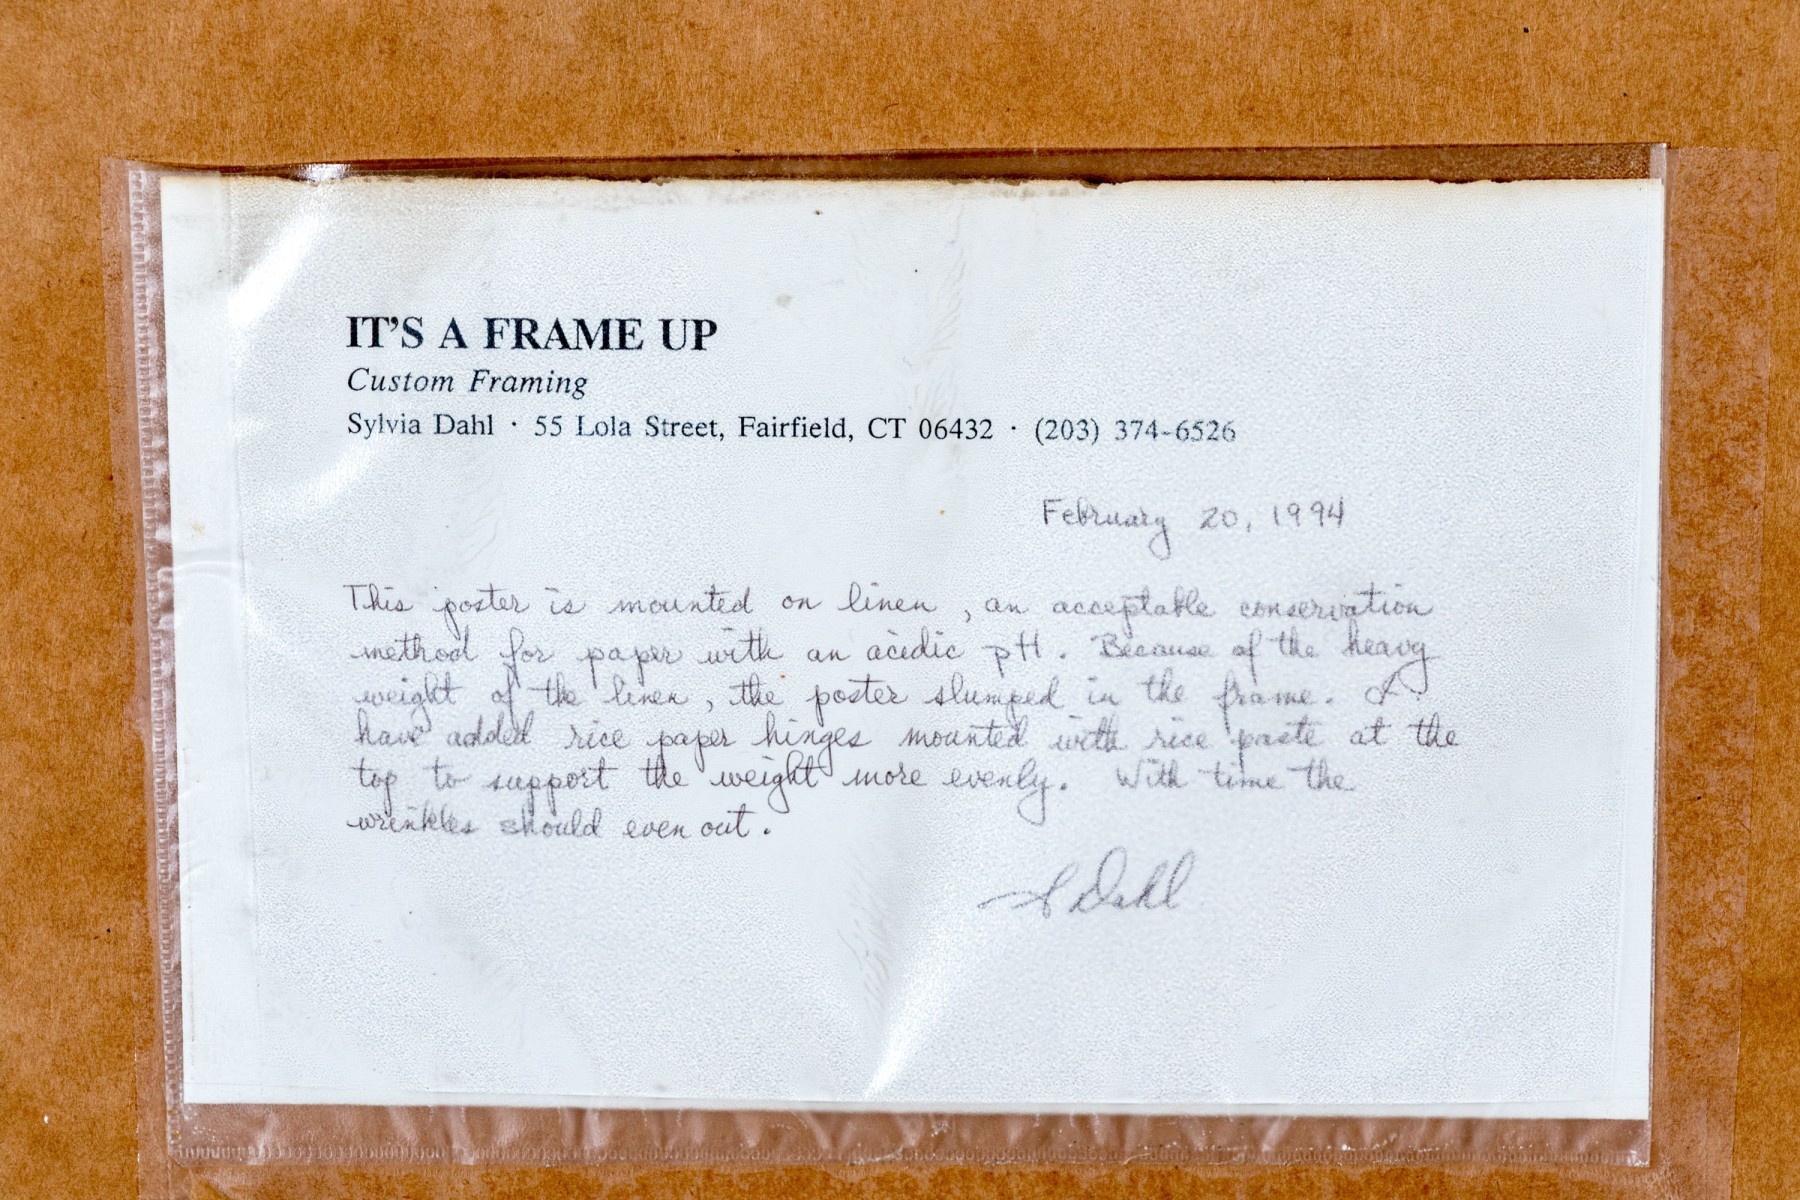 IT'S A FRAME UP
Custom Framing
Sylvia Dahl · 55 Lola Street, Fairfield, CT 06432 · (203) 374-6526
February 20, 1994
This poster is mounted on linen, an acceptable conservation
method for paper with an acidic pH. Because of the heavy
weight of the linen, the poster slumped in the frame. I
have added rice paper hinges mounted with rice paste at the
top to support the weight more evenly. With time the
wrinkles should even out.
S Dahl